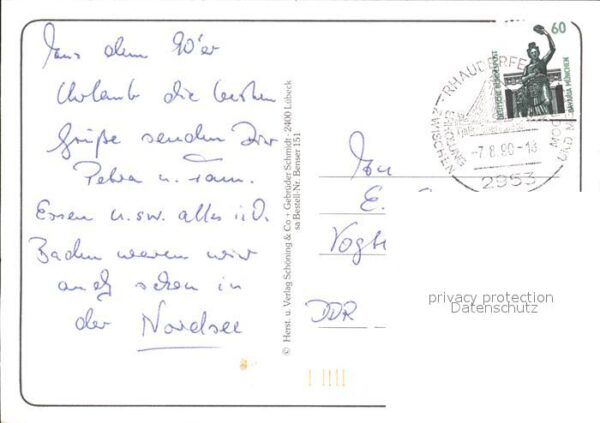 Aus dem 90'er
Urlaub die besten
Grüße senden Dir
Petra u. Fam.
Essen u.sw. alles i.O.
Baden waren wir
auch schon in
der Nordsee
© Herst. u. Verlag Schöning & Co + Gebrüder Schmidt · 2400 Lübeck
sa Bestell-Nr. Benser 151
60
DEUTSCHE BUNDESPOST
BAVARIA MÜNCHEN
RHAUDERFE
ZWISCHEN
MOO
UND M
-7.8.90-18
2953
E.
DDR
privacy protection
Datenschutz